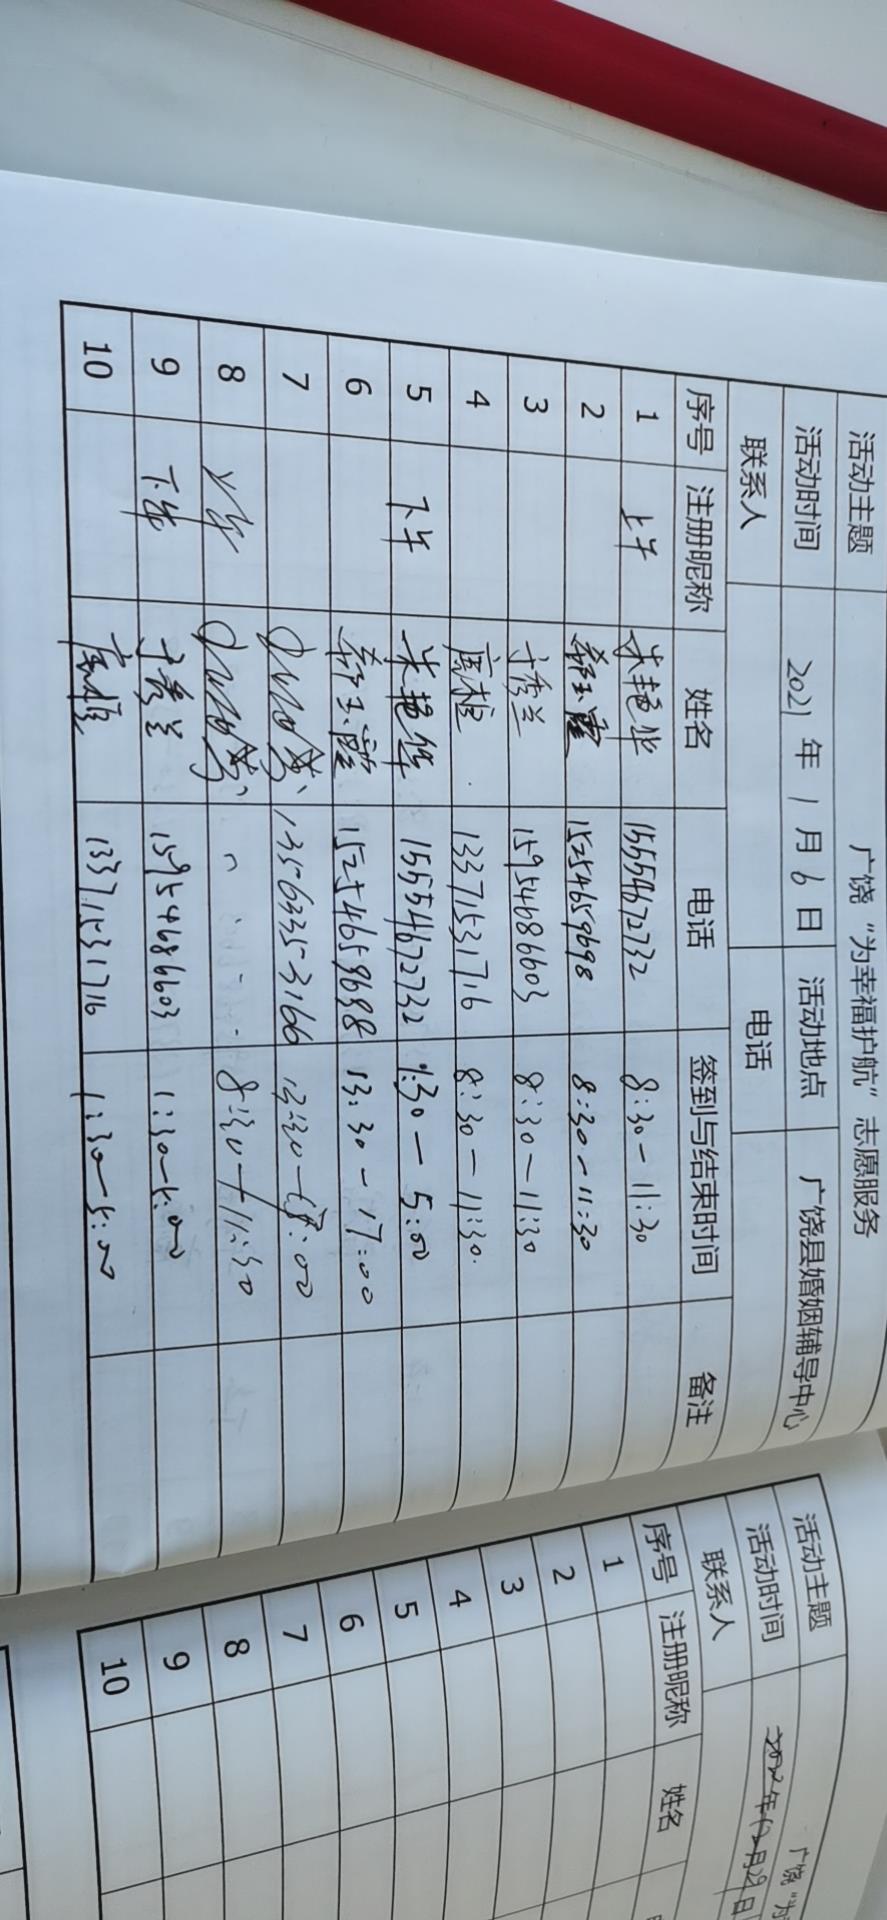 活动主题 广饶“为幸福护航”志愿服务
活动时间 2021年1月6日 活动地点 广饶县婚姻辅导中心
联系人 电话
序号 注册昵称 姓名 电话 签到与结束时间 备注
1 上午 15554672732 8:30-11:30
2 15254659698 8:30-11:30
3 于秀兰 15954686603 8:30-11:30
4 13371531716 8:30-11:30.
5 下午 15554672732 1:30-5:00
6 15254659698 13:30-17:00
7
8 上午 8:30-11:30
9 下午 于秀兰 15954686603 1:30-5:00
10 13371531716 1:30-5:00
活动主题 广饶“为
活动时间
联系人
序号 注册昵称 姓名
1
2
3
4
5
6
7
8
9
10